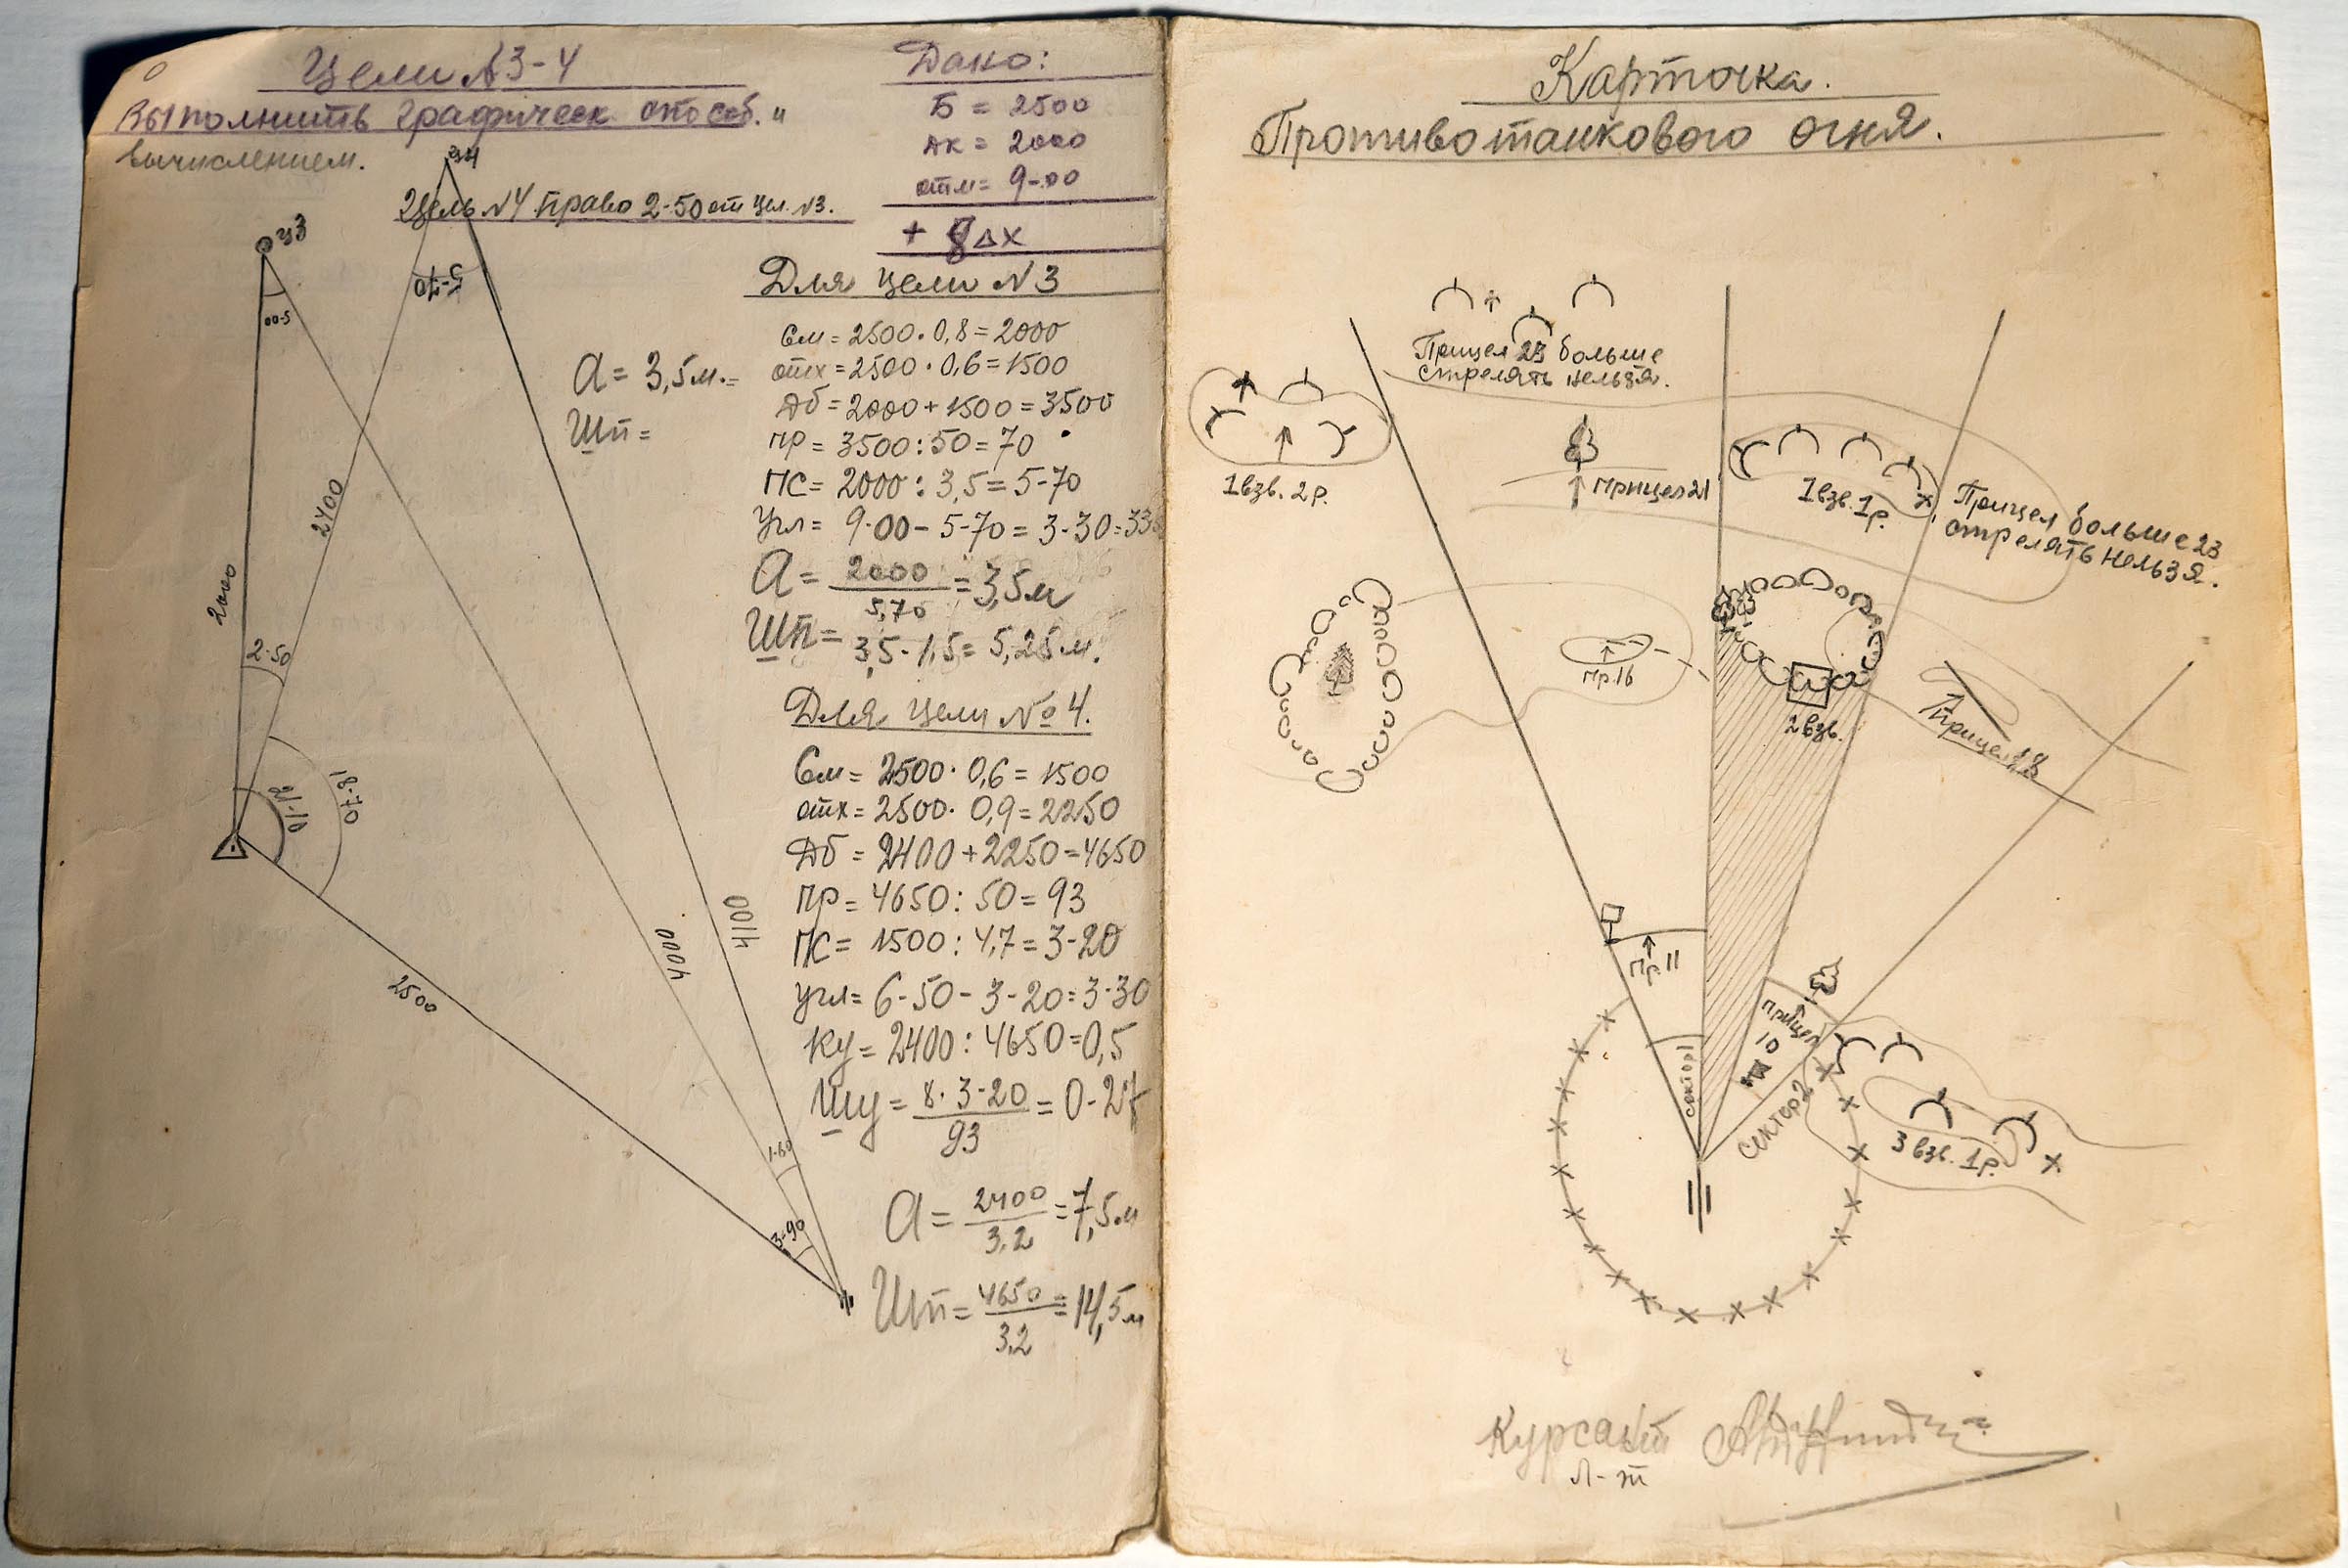 Цели №3-4
Выполнить графическ способ. и
вычислением.
Дано:
Б = 2500
дк = 2000
отм = 9-00
+ 8 Δх
Ц4
Цель №4 право 2-50 от цел. №3.
Ц3
5-00
5-70
2000
2400
2-50
21-10
18-70
2500
4000
4100
1-60
3-90
a = 3,5м. =
Шп =
Для цели №3
См = 2500 · 0,8 = 2000
отх = 2500 · 0,6 = 1500
Дб = 2000 + 1500 = 3500
пр = 3500 : 50 = 70
ПС = 2000 : 3,5 = 5-70
Угл = 9-00 - 5-70 = 3-30 = 33
a = 2000 / 5,70 = 3,5м
Шп = 3,5 · 1,5 = 5,25м.
Для цели № 4.
См = 2500 · 0,6 = 1500
отх = 2500 · 0,9 = 2250
Дб = 2400 + 2250 = 4650
пр = 4650 : 50 = 93
ПС = 1500 : 4,7 = 3-20
угл = 6-50 - 3-20 = 3-30
Ку = 2400 : 4650 = 0,5
Шу = 8 · 3-20 / 93 = 0-27
a = 2400 / 3.2 = 7,5м
Шп = 4650 / 3,2 = 14,5м
Карточка.
Противотанкового огня.
Прицел 23 больше
стрелять нельзя.
1 взв. 2 р.
Прицел 21
1 взв. 1 р.
Прицел больше 23
стрелять нельзя.
Пр. 16
2 взв.
Прицел 18
Пр. 11
Прицел
10
сектор 1
сектор 2
3 взв. 1 р.
Курсант
л-т